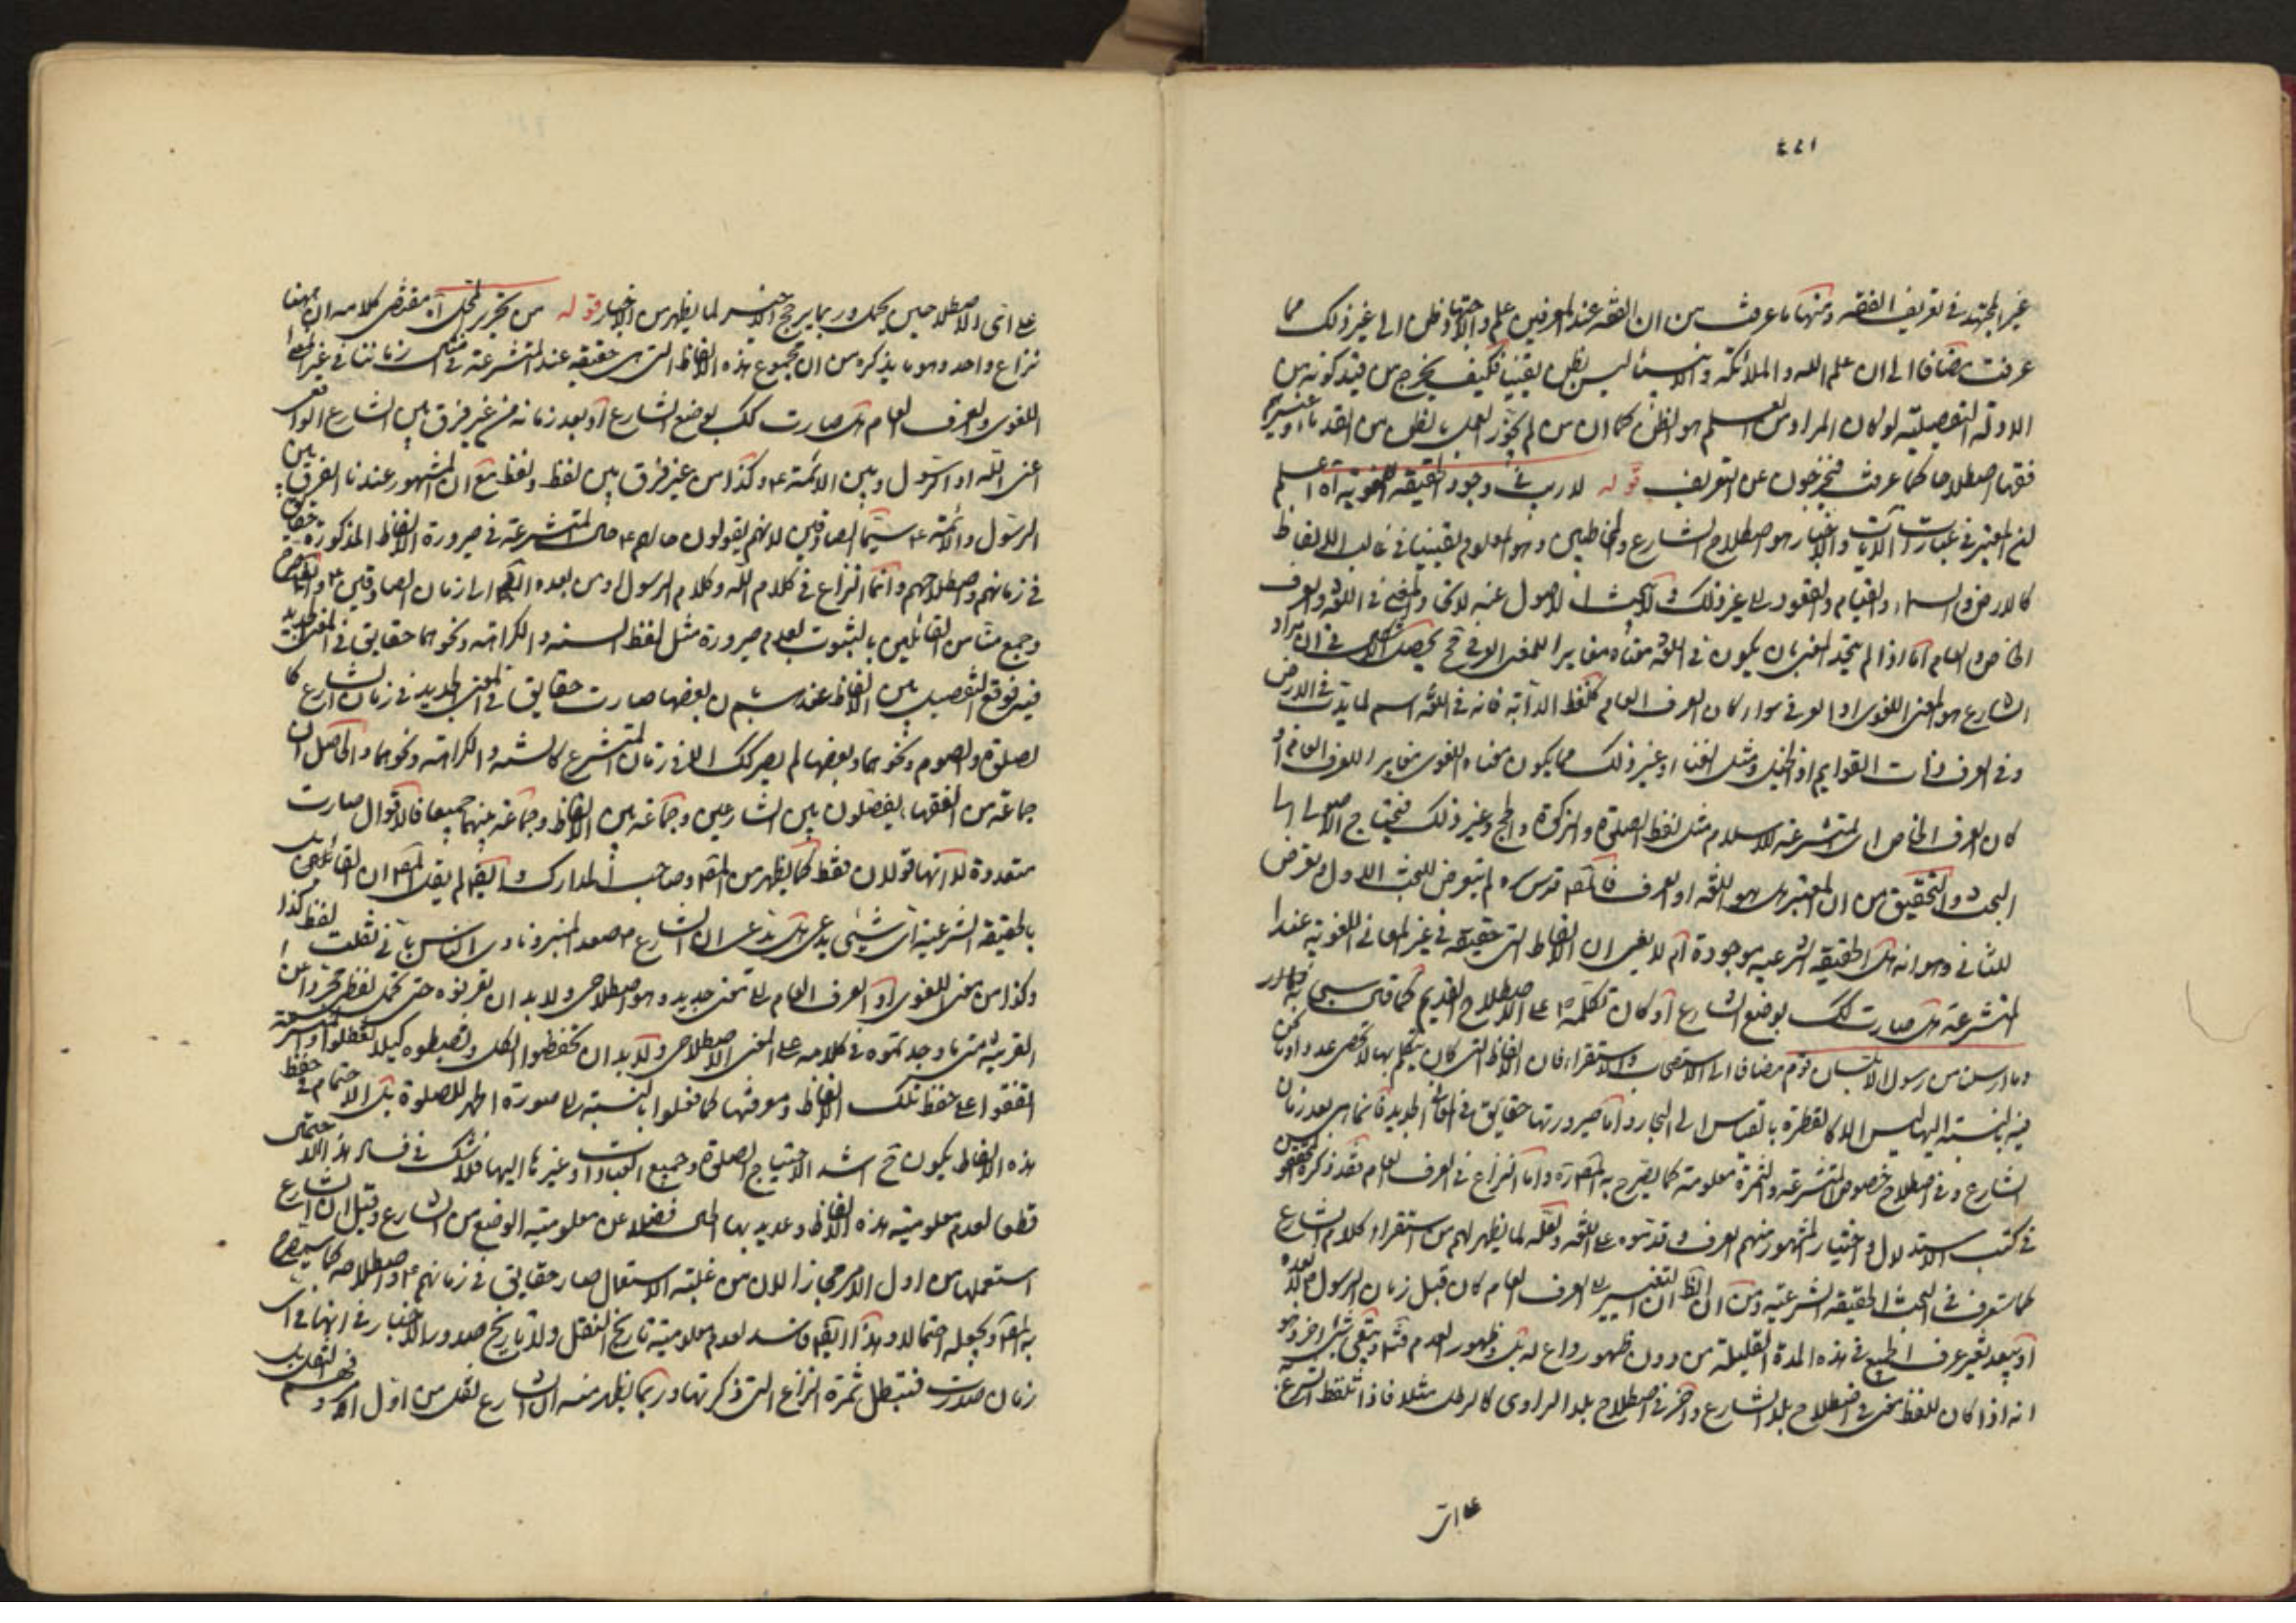 ٤٤١
غير المجتهد في تعريف الفقه ومنها ما عرفت من ان الفقه عند المعرفين علم والاجتهاد ظن الى غير ذلك مما
عرفت مضافا الى ان علم الله والملائكة والانبياء ليس بظن يقينا فكيف يخرج من قيد كونه من
الادلة التفصيلية لو كان المراد من العلم هو الظن كما ان من لم يجوز العمل بالظن من القدماء
فقهاء اصطلاحا كما عرفت فيخرجون عن التعريف قوله لا ريب في وجود الحقيقة اللغوية آه اعلم
ان المعتبر في عبارت الآيات والاخبار هو اصطلاح الشارع والمخاطبين وهو المعلوم يقينا في غالب الالفاظ
كالارض والسماء والقيام والقعود الى غير ذلك ولا يبحث الاصول عنه لاتحاد المعنى في اللغة والعرف
الخاص والعام اما اذا لم يتحد المعنى بان يكون في اللغة معناه مغايرا للمعنى العرفي فح يحصل الشك في ان مراد
الشارع هو المعنى اللغوى او العرفي سواء كان العرف العام كلفظ الدابة فانه في اللغة اسم لما يدب في الارض
وفي العرف ذات القوايم او الخيل ومثل الغناء وغير ذلك مما يكون معناه اللغوى مغايرا للعرف العام او
كان العرف الخاص اى المتشرعة للاسلام مثل لفظ الصلوة والزكوة والحج وغير ذلك فيحتاج الاصولى الى
البحث والتحقيق من ان المعتبر هل هو اللغة او العرف فالمص قدس سره لم يتعرض للبحث الاول وتعرض
للثانى وهو انه هل الحقيقة الشرعية موجودة ام لا يعنى ان الالفاظ التى حقيقة في غير المعانى اللغوية عند
المتشرعة هل صارت كذلك بوضع الشارع او كان تكلمه ص على الاصطلاح القديم كما قال سبحانه
وما ارسلنا من رسول الا بلسان قومه مضافا الى الاستصحاب والاستقراء فان الالفاظ التى كان يتكلم بها لا تحصى عددا وما نحن
فيه بالنسبة اليها ليس الا كالقطرة بالقياس الى البحار واما صيرورتها حقايق في المعانى الجديدة فانما هى بعد زمان
الشارع وفي اصطلاح خصوص المتشرعة والثمرة معلومة كما يصرح به المص ره واما النزاع في العرف العام فقد ذكره
في كتب الاستدلال واختيار المشهور منهم العرف وقدموه على اللغة ولعله لما يظهر لهم من استقراء كلام الشارع
كما ستعرف في البحث الحقيقة الشرعية ومن ان الظ ان التغيير في العرف العام كان قبل زمان الرسول ص لا بعده
او يبعد تغير عرف الجميع في هذه المدة القليلة من دون ظهور داع له بل وظهور العدم فتم وبقى شىء آخر وهو
انه اذا كان للفظ معنى في اصطلاح بلد الشارع وآخر في اصطلاح بلد الراوى كالرطل مثلا فاذا تلفظ الشرع
على اى
على اى الاصطلاحين يحمل وربما يرجح الاخير لما يظهر من الاخبار قوله من تحرير المحل آه مقتضى كلامه ان ههنا
نزاع واحد وهو ما يذكره من ان مجموع هذه الالفاظ التى هى حقيقة عند المتشرعة في امثال زماننا في غير المعنى
اللغوى والعرف العام هل صارت كذلك بوضع الشارع او بعد زمانه من غير فرق بين الشارع الواقعى
اعنى الله او الرسول وبين الائمة ع وكذا من غير فرق بين لفظ ولفظ مع ان المشهور عندنا الفرق بين
الرسول والائمة ع سيما الصادقين لانهم يقولون حالهم ع حال المتشرعة في صيرورة الالفاظ المذكورة حقايق
في زمانهم واصطلاحهم وانما النزاع في كلام الله وكلام الرسول ومن بعده الى زمان الصادقين ع
وجمع منا من القائلين بالثبوت لعدم صيرورة مثل لفظ السنة والكراهة ونحوهما حقايق في المعنى الجديد
فيه فوقع التفصيل بين الالفاظ عندهم بان بعضها صارت حقايق في المعنى الجديد في زمان الشارع كا
لصلوة والصوم ونحوهما وبعضها لم يصر كذلك الا في زمان المتشرع كالسنة والكراهة ونحوهما والحاصل ان
جماعة من الفقهاء يفصلون بين الشارعين وجماعة بين الالفاظ وجماعة بينهما جميعا فالاقوال صارت
متعددة لا انها قولان فقط كما يظهر من المص وصاحب المدارك وايضا لم يقل المص ان القائلين
بالحقيقة الشرعية اى شىء يدعى هل يدعى ان الشارع ص صعد المنبر ونادى الناس بانى نقلت لفظ كذا
وكذا من معنى اللغوى او العرف العام الى معنى جديد وهو اصطلاحى ولا بد ان تعرفوه حتى تحمل لفظى مجردا عن
القرينة متى ما وجدتموه في كلامه على المعنى الاصطلاحى ولا بد ان تحفظوا الكل وتضبطوه كيلا تغفلوا
اتفقوا على حفظ تلك الالفاظ ومعرفتها كما فعلوا بالنسبة الى صورة الظهر للصلوة بل الاهتمام في حفظ
هذه الالفاظ يكون ح اشد الاحتياج الصلوة وجميع العبادات وغيرها اليها فلا شك في فساد هذا الاحتمال
قطعا لعدم معلومية هذه الالفاظ وعديدها الى فضلا عن معلومية الوضع من الشارع وقيل ان الشارع
استعملها من اول الامر مجازا لان من غلبة الاستعمال صار حقايق في زمانهم ع واصطلاحه كما سيصرح
به المص ويجعله احتمالا وهذا ايضا فاسد لعدم معلومية تاريخ النقل ولا تاريخ صدور الاخبار في انها في اى
زمان صدرت فتبطل ثمرة النزاع التى ذكرتها وربما يظهر منه ان الشارع نقل من اول الامر